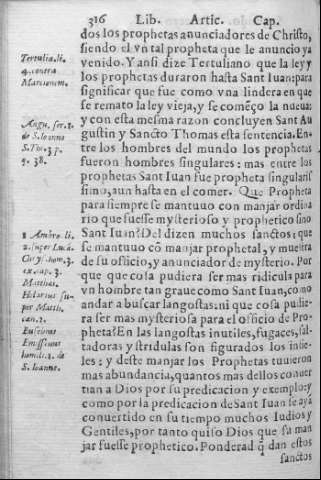 316 Lib. Artic. Cap.
dos los prophetas anunciadores de Christo,
siendo el vn tal propheta que le anuncio ya
venido. Y ansi dize Tertuliano que la ley y
los prophetas duraron hasta Sant Iuan: para
significar que fue como vna lindera en que
se remato la ley vieja, y se comẽço la nueua:
y con esta mesma razon concluyen Sant Au
gustin y Sancto Thomas esta sentencia. En-
tre los hombres del mundo los prophetas
fueron hombres singulares: mas entre los
prophetas Sant Iuan fue propheta singularis
simo, aun hasta en el comer. Que Propheta
para siempre se mantuuo con manjar ordina
rio que fuesse mysterioso y prophetico sino
Sant Iuan? Del dizen muchos sanctos: que
se mantuuo cõ manjar prophetal, y muestra
de su officio, y anunciador de mysterio. Por
que que cosa pudiera ser mas ridicula para
vn hombre tan graue como Sant Iuan, como
andar a buscar langostas: ni que cosa pudie
ra ser mas mysteriosa para el officio de Pro-
pheta? En las langostas inutiles, fugaces, sal-
tadoras y stridulas son figurados los infie-
les: y deste manjar los Prophetas tuuieron
mas abundancia, quantos mas dellos conuer
tian a Dios por su predicacion y exemplo: y
como por la predicacion de Sant Iuan se aya
conuertido en su tiempo muchos Iudios y
Gentiles, por tanto quiso Dios que su man
jar fuesse prophetico. Ponderad q̃ dan estos
sanctos
Tertulia. li.
4. contra
Marcionem.
Augu. ser. 2.
de S. Ioanne
S. Tho. 3. p.
q. 38.
Ambro. li.
2. super Lucã.
Chrys. hom. 3.
ex cap. 3.
Matthæi.
Hilarius su-
per Matth.
can. 2.
Eusebius
Emissenus
homil. 1. de
S. Ioanne.